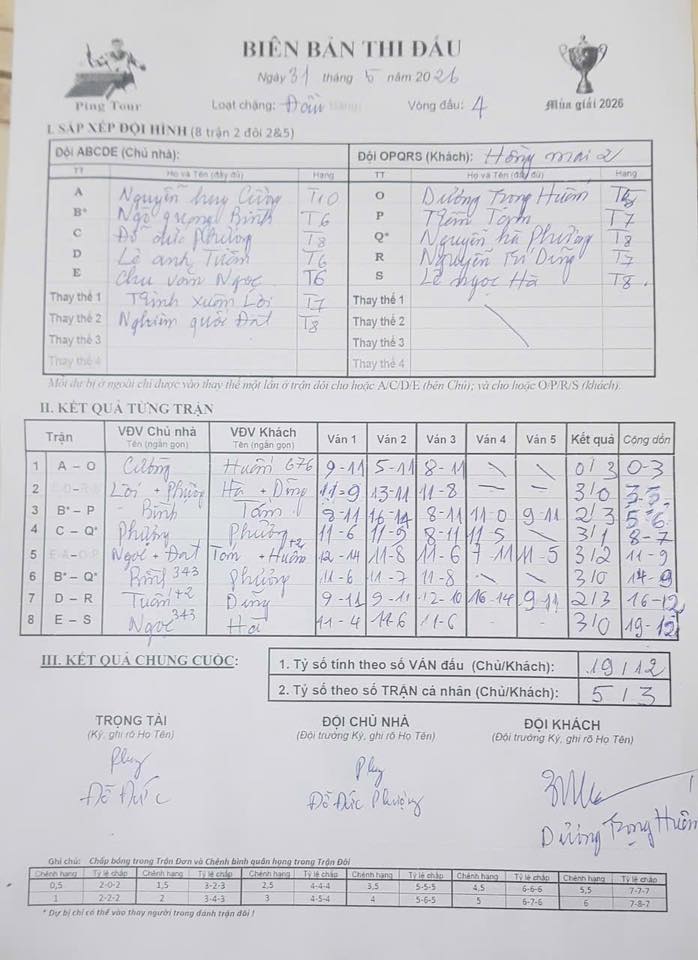 BIÊN BẢN THI ĐẤU
Ngày 31 tháng 5 năm 2026
Ping Tour
Loạt chặng: Vòng đấu: 4
Mùa giải 2026
I. SẮP XẾP ĐỘI HÌNH (8 trận 2 đôi 2&5)
Đội ABCDE (Chủ nhà): Đội OPQRS (Khách): Hồng mai 2
TT Họ và Tên (đầy đủ) Hạng TT Họ và Tên (đầy đủ) Hạng
A Nguyễn huy Cường T10 O Dương Trọng Huấn
B* Ngô quang Bình T6 P Tâm T7
C Đỗ đức Phương T8 Q* Nguyễn hà Phương T8
D Lê anh Tuấn T6 R Nguyễn Trí Dũng T7
E Chu văn Ngọc T6 S Lê ngọc Hà T8
Thay thế 1 Trịnh xuân Lời T7 Thay thế 1
Thay thế 2 Nghiêm quốc Đạt T8 Thay thế 2
Thay thế 3 Thay thế 3
Thay thế 4 Thay thế 4
Mỗi dự bị ở ngoài chỉ được vào thay thế một lần ở trận đôi cho hoặc A/C/D/E (bên Chủ); và cho hoặc O/P/R/S (khách).
II. KẾT QUẢ TỪNG TRẬN
Trận VĐV Chủ nhà Tên (ngắn gọn) VĐV Khách Tên (ngắn gọn) Ván 1 Ván 2 Ván 3 Ván 4 Ván 5 Kết quả Cộng dồn
1 A – O Cường Huấn 676 9-11 5-11 8-11 \ \ 0/3 0-3
2 Lời + Phương Hà + Dũng 11-9 13-11 11-8 3/0
3 B* – P Bình Tâm 8-11 8-11 11-0 9-11 2/3 5-6
4 C – Q* Phương Phương 11-6 11-9 8-11 11-5 3/1 8-7
5 Ngọc + Đạt Tâm + Huấn +2 12-14 11-8 11-6 7-11 11-5 3/2 11-9
6 B* – Q* Bình 343 Phương 11-6 11-7 11-8 \ \ 3/0 14-9
7 D – R Tuấn +2 Dũng 9-11 9-11 12-10 16-14 9-11 2/3 16-12
8 E – S Ngọc 343 Hà 11-4 11-6 11-6 - - 3/0 19-12
III. KẾT QUẢ CHUNG CUỘC:
1. Tỷ số tính theo số VÁN đấu (Chủ/Khách): 19/12
2. Tỷ số theo số TRẬN cá nhân (Chủ/Khách): 5/3
TRỌNG TÀI ĐỘI CHỦ NHÀ ĐỘI KHÁCH
(Ký, ghi rõ Họ Tên) (Đội trưởng Ký, ghi rõ Họ Tên) (Đội trưởng Ký, ghi rõ Họ Tên)
Đỗ Đức Đỗ Đức Phương Dương Trọng Huấn
Ghi chú: Chấp bóng trong Trận Đơn và Chênh bình quân hạng trong Trận Đôi
Chênh hạng Tỷ lệ chấp Chênh hạng Tỷ lệ chấp Chênh hạng Tỷ lệ chấp Chênh hạng Tỷ lệ chấp Chênh hạng Tỷ lệ chấp Chênh hạng Tỷ lệ chấp
0,5 2-0-2 1,5 3-2-3 2,5 4-4-4 3,5 5-5-5 4,5 6-6-6 5,5 7-7-7
1 2-2-2 2 3-4-3 3 4-5-4 4 5-6-5 5 6-7-6 6 7-8-7
* Dự bị chỉ có thể vào thay người trong đánh trận đôi !